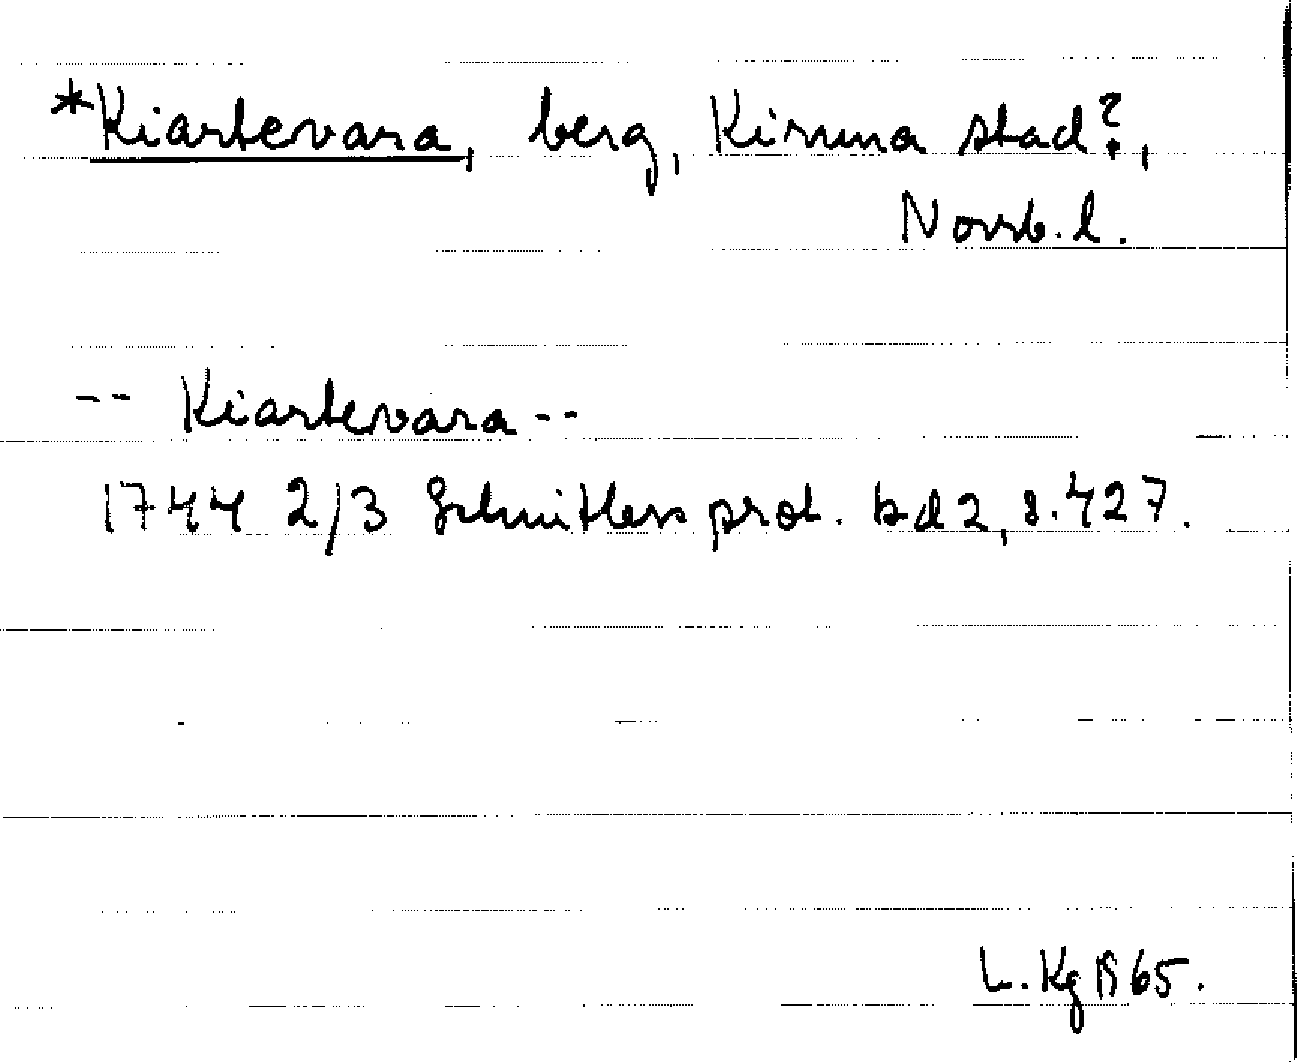 *Kiartevara, berg, Kiruna stad?,
Norrb. l.
-- Kiartevara --
1744 2/3 Schnitlers prot. bd 2, s. 427.
L. Kg 65.